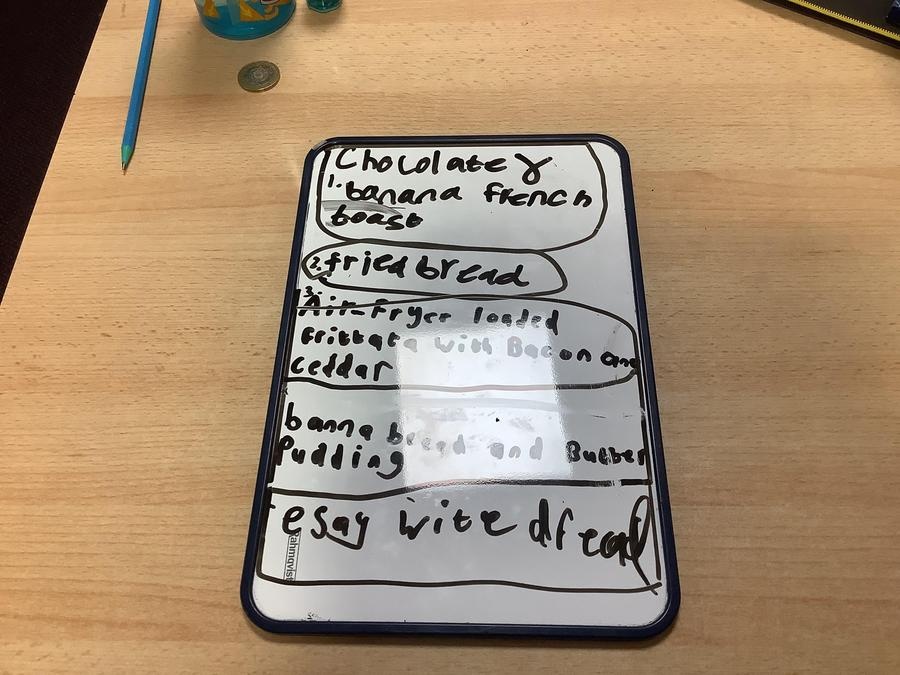 Chocolate &
1. banana french
toast
2. fried bread
3. Air-Fryer loaded
frittata with Bacon and
ceddar
banna bread and Butter
Pudding
esay wite dread
Rahmqvist